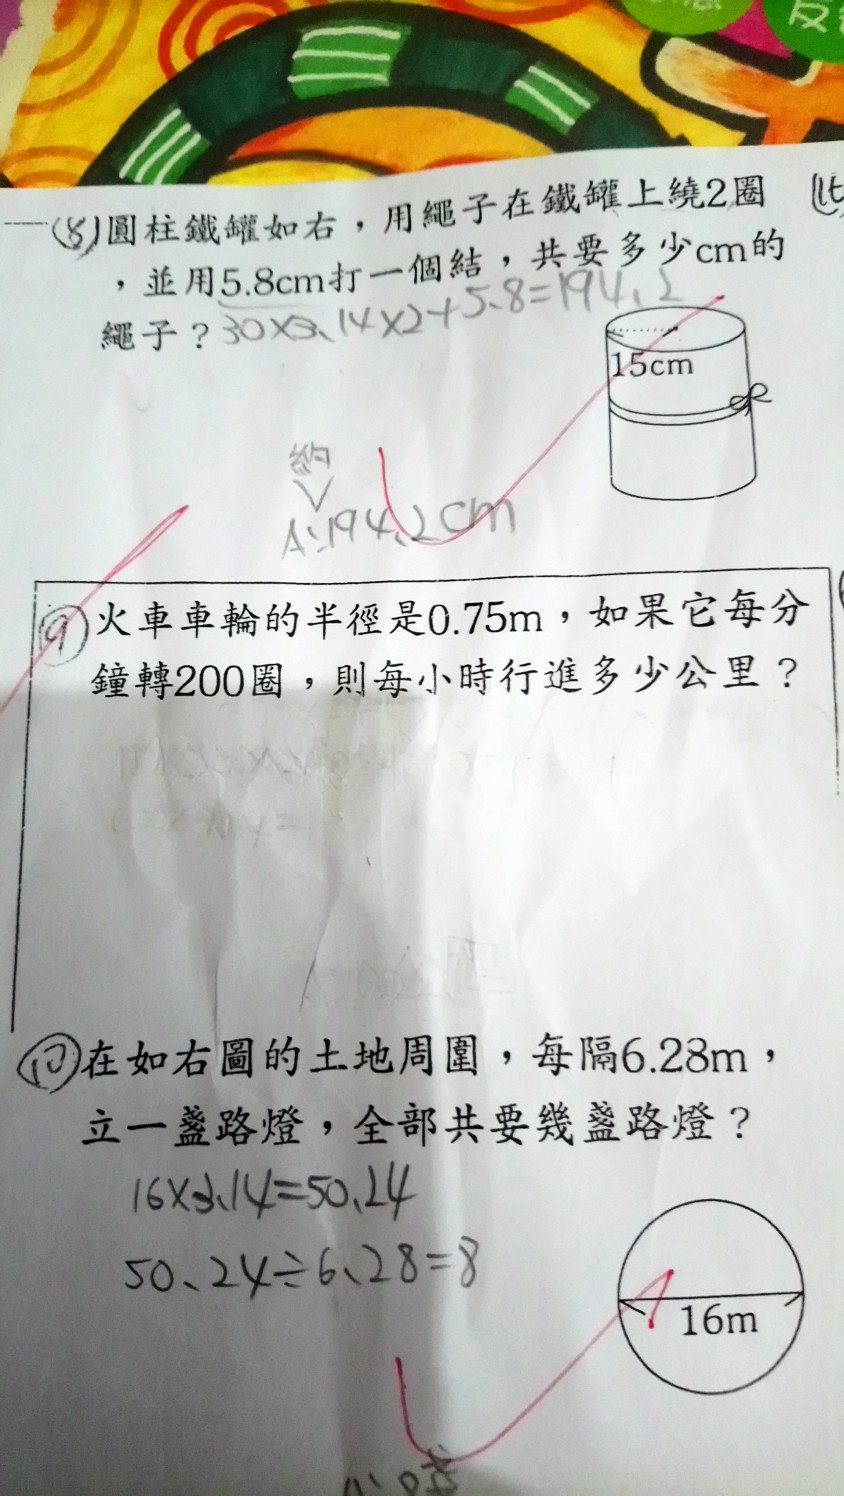 反
(8)圓柱鐵罐如右，用繩子在鐵罐上繞2圈
，並用5.8cm打一個結，共要多少cm的
繩子？30×3.14×2+5.8=194.2
15cm
約
A:194.2cm
(9)火車車輪的半徑是0.75m，如果它每分
鐘轉200圈，則每小時行進多少公里？
(10)在如右圖的土地周圍，每隔6.28m，
立一盞路燈，全部共要幾盞路燈？
16×3.14=50.24
50.24÷6.28=8
16m
A:8盞